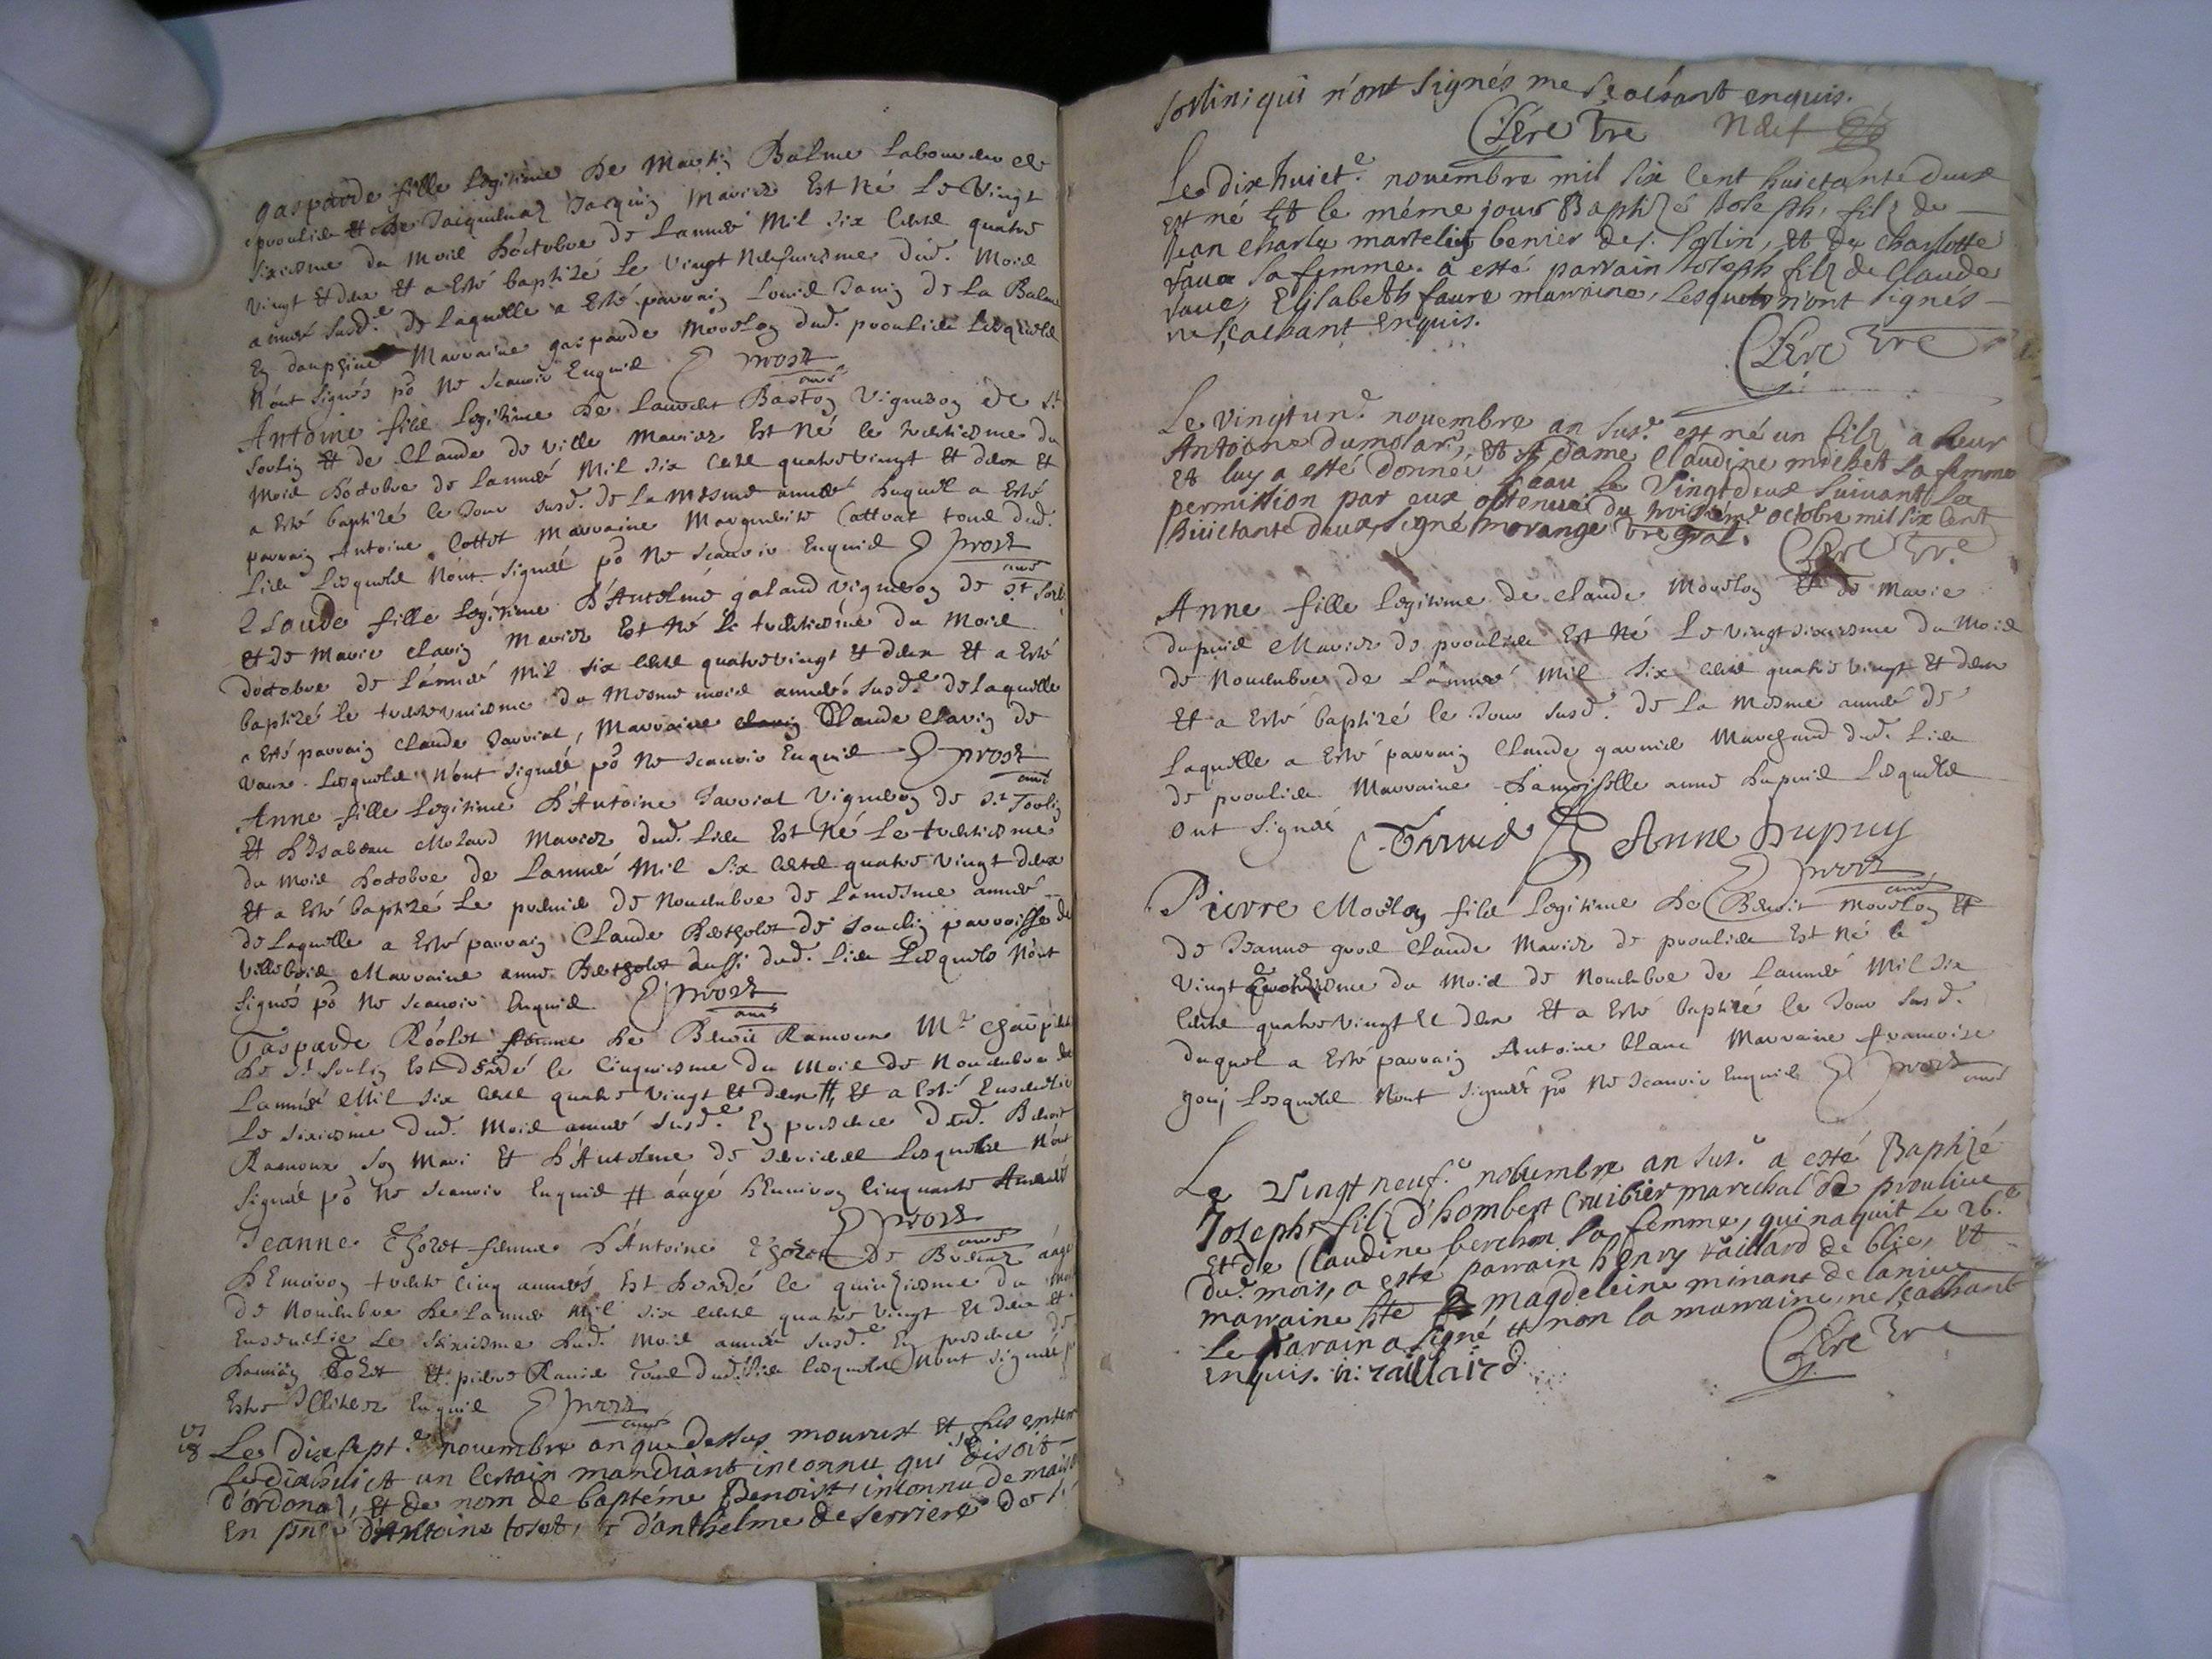 gasparde fille Legitime de Martin Balme Laboureur de
proulieu et de Jacquemaz Jacquin Mariez Est Né Le Vingt
sixiesme du Moid d'octobre de L'année Mil six cent quatre
Vingt et deux Et a Esté baptizé Le Vingt neufuiesme dud. Moid
année susd.e de laquelle a Esté parrain Louid Janin de La Balme
En dauphiné Marraine gasparde Morelon dud. proulieu Lesqueld
N'ont Signés pô Ne scauoir Enquid Prost curé
Antoine fild Legitime de Laurent Baston Vigneron de St
Sorlin Et de Claude de Ville Mariez Est Né le trentiesme du
Moid d'octobre de L'année Mil six cent quatre vingt Et deux Et
a Esté baptizé le Jour susd. de La mesme année duquel a Esté
parrain Antoine Cottet Marraine Marguerite Cattoat toud dud.
Lieu Lesqueld N'ont Signéé pô Ne scauoir Enquid Prost curé
Claude fille Legitime d'Antelme galand Vigneron de St Sorl.
et de Marie Clarin Mariez Est Né Le trentiesme du Moid
d'octobre de L'année Mil six cent quatre vingt Et deux Et a Esté
baptizé le trente uniesme du Mesme moid année susd.e de laquelle
a Esté parrain Claude Jarriat, Marraine Claude Clarin de
Vaux. Lesqueld N'ont Signéé pô Ne scauoir Enquid Prost curé
Anne fille Legitime d'Antoine Jarriat Vigneron de St Sorlin
et d'Isabeau Molard Mariez dud. Lieu Est Né Le trentiesme
du Moid d'octobre de L'année Mil six cent quatre Vingt deux
Et a Esté baptizé Le premier de Nouembre de La mesme année
de Laquelle a Esté parrain Claude Bertholet de Souclin parroisse de
Villeboid Marraine anne Bertholet aussi dud. Lieu Lesquels N'ont
Signés pô Ne scauoir Enquid Prost curé
Gasparde Rôolet femme de Benoit Ramoux M.e
de St Sorlin Est décédé le Cinquiesme du Moid de Nouembre de
L'année Mil six cent quatre Vingt Et deux #, Et a Esté Enseuelie
Le sixiesme dud. Moid année susd.e En presence dud. Benoit
Ramoux Son Mari Et d'Antelme de Lesqueld N'ont
Signéé pô Ne scauoir Enquid # aagé d'Enuiron Cinquante Années
Prost curé
Jeanne Thozet femme d'Antoine Thozet de aagé
d'Enuiron trente Cinq années Est décédé le quinziesme du Moid
de Nouembre de L'année Mil six cent quatre Vingt Et deux Et
Enseuelie Le seiziesme dud. Moid année susd.e En presence de
Damian Tozet Et pierre Ramel toud dud. Lieu Lesqueld N'ont Signéé p
Estre Illiterez Enquid Prost curé
17
18 Le dixsept.e nouembre an que dessus mourut et fus enterré
Le dixhuict un certain mandiant inconnu qui se disoit
d'ordonaz, et de nom de baptéme Benoist, inconnu de maison
En pnce d'Antoine tozet, et d'anthelme de serriere de s.
sorlin; qui n'ont signés ne scachant enquis.
Clére Vre
Le dixhuict.e nouembre mil six cent huictante deux
est né et le méme jour Baptizé Joseph, filz de
Jean Charles martelin benier de s. sorlin, et de Charlotte
Vaux sa femme. a esté parrain Joseph filz de Claude
Vaux, Elisabeth faure marraine, lesquels n'ont signés
ne scachant enquis.
Clére Vre
Le vingtun.e nouembre an susd. est né un filz a sieur
Antoine dumolard, et dame Claudine michet sa femme
et luy a esté donnée l'eau Le Vingtdeux suiuant La
permission par eux obtenue du troisiém.e octobre mil six cent
huictante deux, signé morange vre gnal. Clére Vre
Anne fille Legitime de Claude Morelon et de Marie
dupuid Mariez de proulieu Est Né Le vingt sixiesme du Moid
de Nouembre de L'année Mil Six cent quatre vingt Et deux
Et a Esté baptizé le Jour susd. de La mesme année de
Laquelle a Esté parrain Claude garnid Marchand dud. Lieu
de proulieu Marraine damoiselle anne dupuid Lesqueld
ont Signéé Garnid Anne Dupuy
Prost curé
Pierre Morelon fild Legitime de Benoit Morelon Et
de Jeanne Claude Mariez de proulieu Est Né le
Vingt du Moid de Nouembre de L'année Mil six
cent quatre vingt Et deux Et a Esté baptizé le Jour susd.
duquel a Esté parrain Antoine blanc Marraine francoise
goy Lesqueld N'ont Signéé pô Ne scauoir Enquid Prost curé
Le Vingt neuf.e nobembre an sus.d a esté Baptizé
Joseph filz d'hombert Cruibier marechal de proulieu
et de Claudine berchon sa femme, qui naquit le 26.e
dud. mois, a esté parrain henry raillard de blie, et
marraine Magdeleine minant de lanieu
Le Parain a signé et non la marraine, ne scachant
enquis. h: raillaird Clére Vre